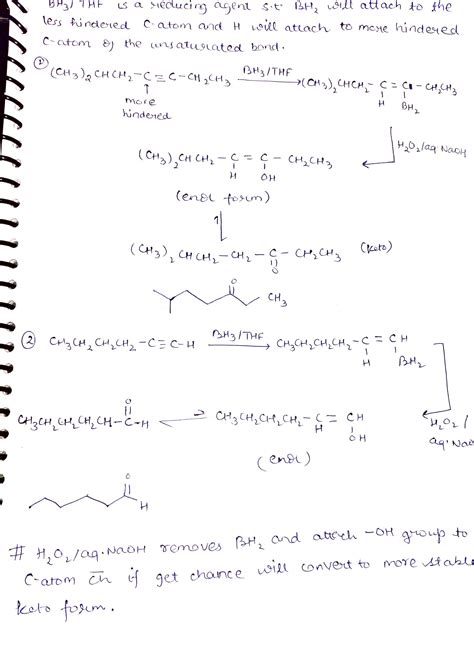 BH3/THF is a reducing agent s.t BH2 will attach to the
less hindered C-atom and H will attach to more hindered
C-atom of the unsaturated bond.
① (CH3)2CHCH2-C≡C-CH2CH3 BH3/THF → (CH3)2CHCH2-C=C-CH2CH3
↑ H BH2
more
hindered
H2O2/aq NaOH
(CH3)2CHCH2-C=C-CH2CH3
H OH
(enol form)
⇌
(CH3)2CHCH2-CH2-C-CH2CH3 (keto)
O
O
CH3
② CH3CH2CH2CH2-C≡C-H BH3/THF → CH3CH2CH2CH2-C=CH
H BH2
O
CH3CH2CH2CH2CH-C-H ⇌ CH3CH2CH2CH2-C=CH
H OH
H2O2/
aq. NaO
(enol)
O
H
# H2O2/aq.NaOH removes BH2 and attach -OH group to
C-atom c̅h̅ if get chance will convert to more stable
keto form.